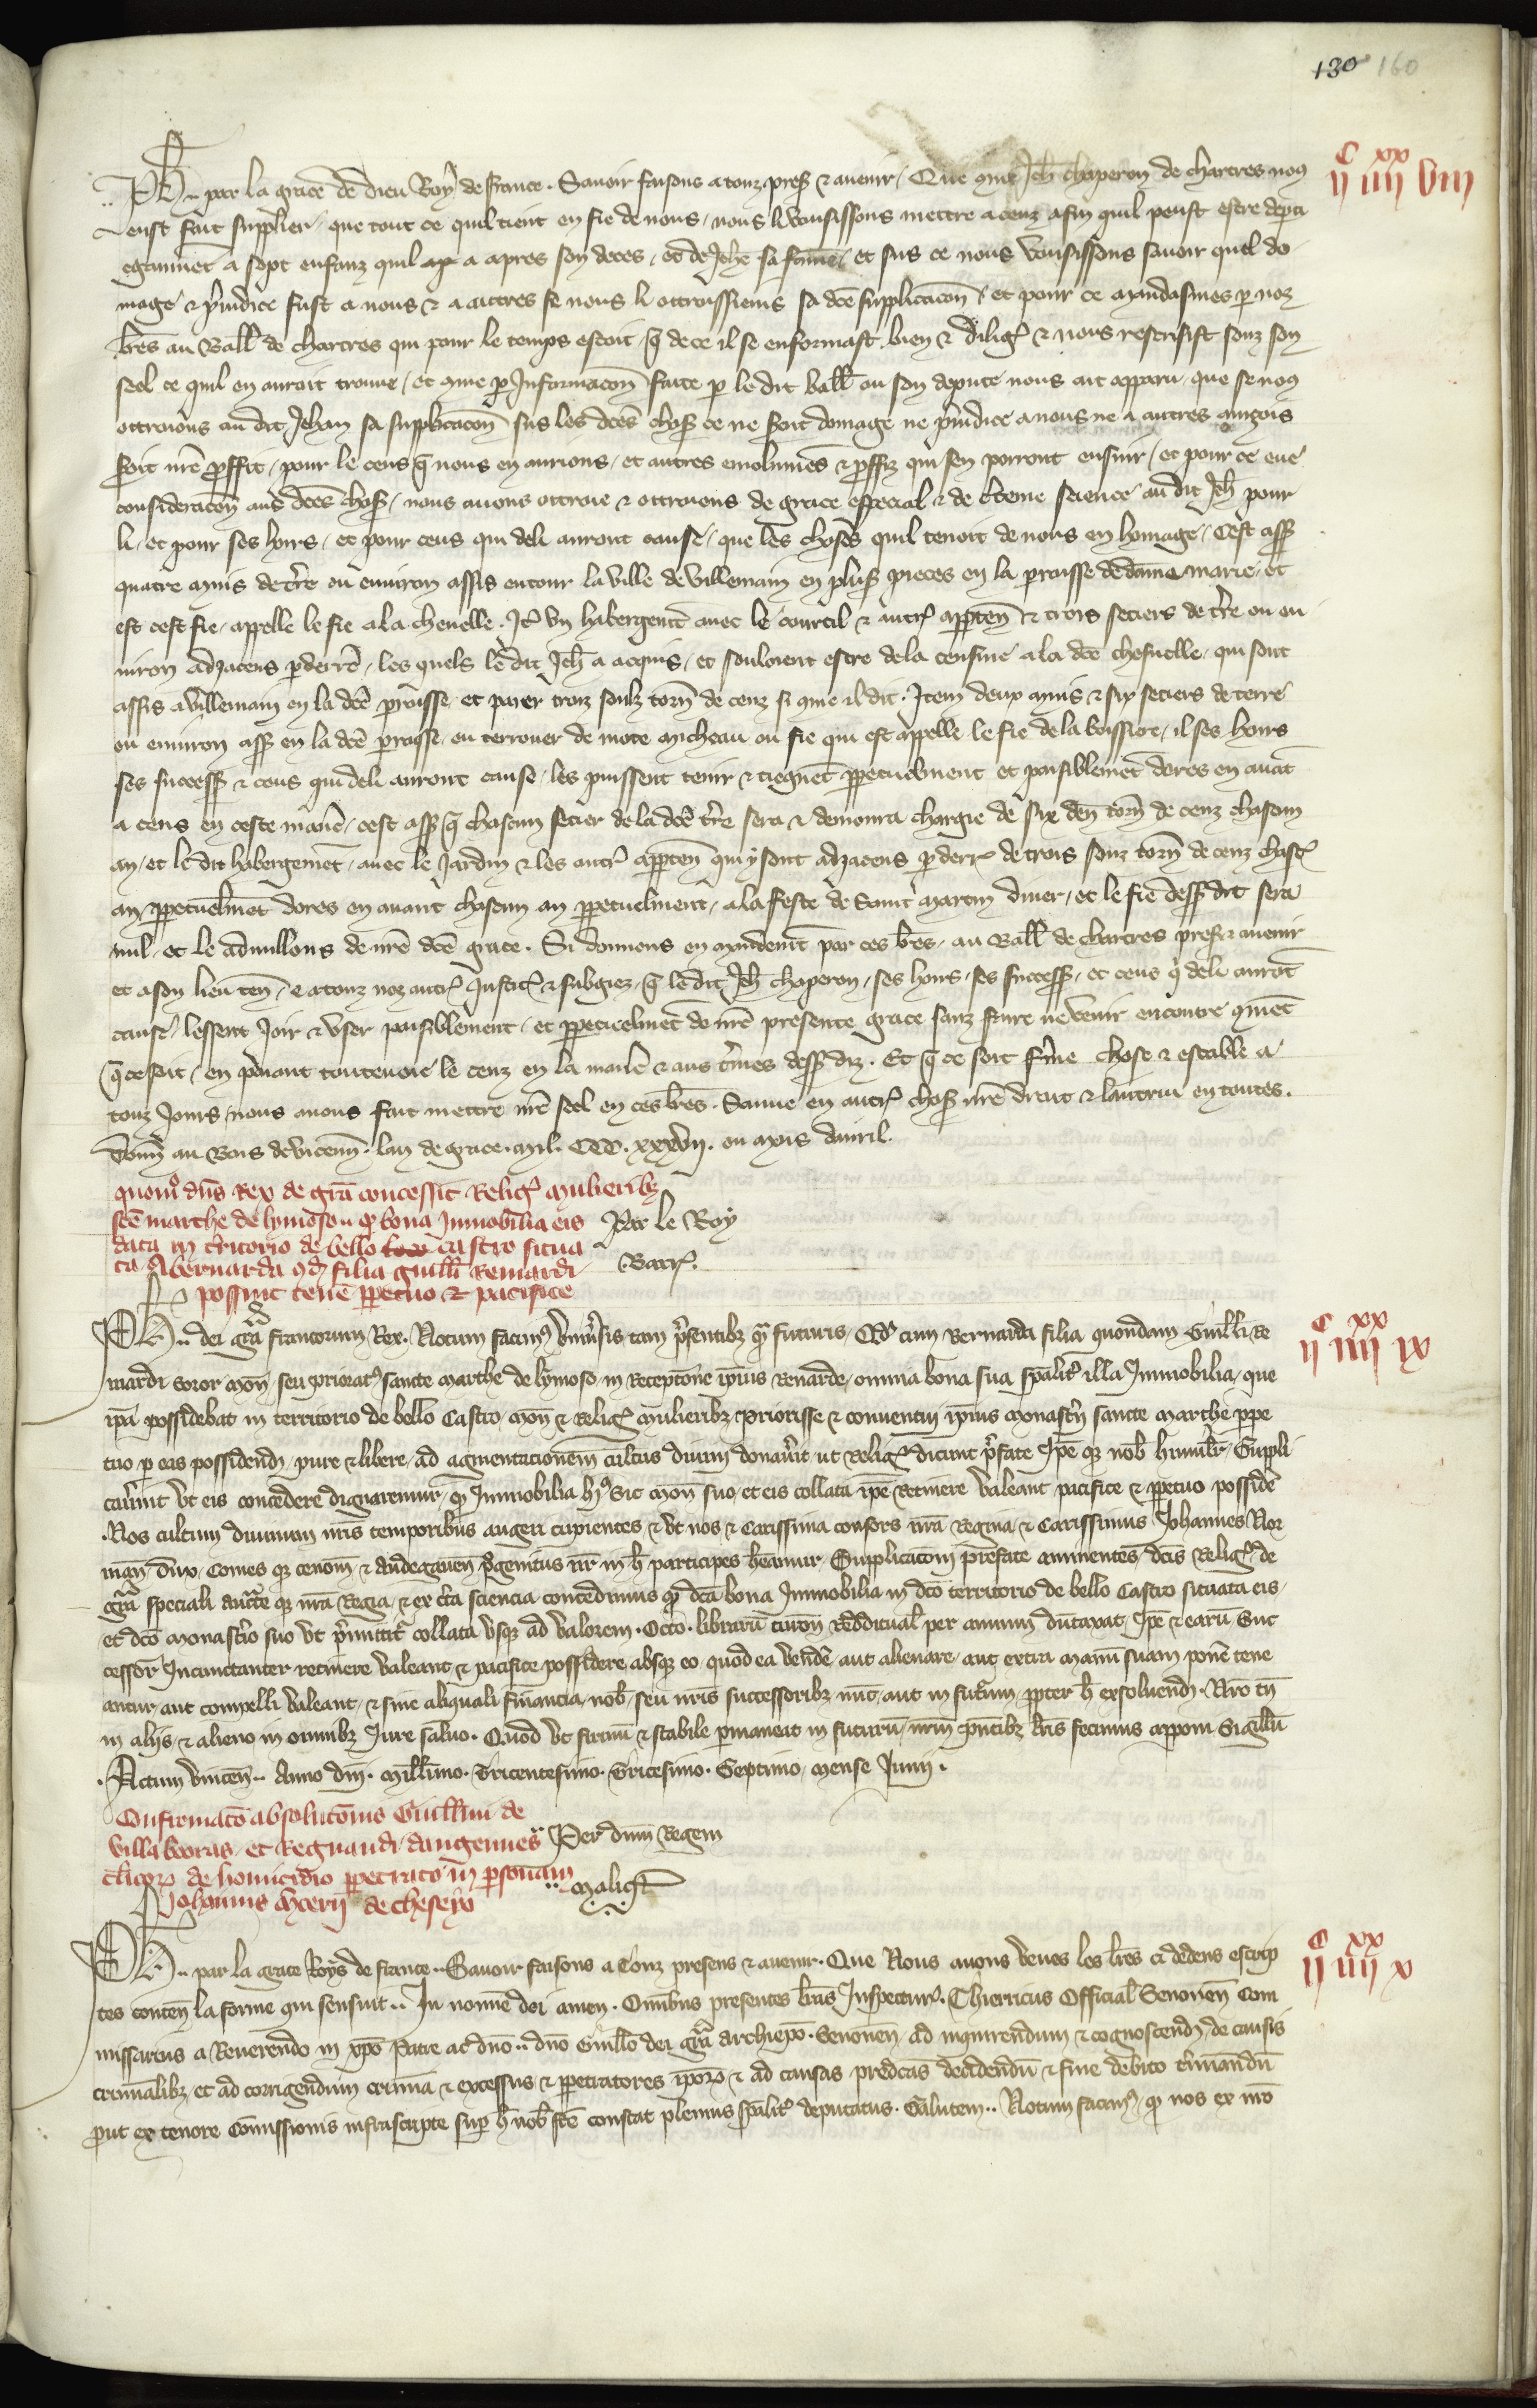 130 160
c xx
ij iiij viij
Ph.. par la grace de dieu Roy de france. Sauoir faisons a touz pres̄ & auenir. Que cōme Jeh̄ chaperon de chartres nous
eust fait supplier, que tout ce quil tient en fie de nous, nous li vousissons mettre a cenz afin quil peust estre depti
egaumēt a sept enfanz quil a apres son deces, et de Jehē sa fāme, et sus ce nous vousissons sauoir quel do
mage & p̄iudice fust a nous & a autres se nous li ottroissiens sa dc̄e supplicacōn, et pour ce mandasmes p noz
lr̄es au Baill̄ de chartres qui pour le temps estoit, q̄ de ce il se enformast bien & diliḡ & nous rescrisist souz son
seel ce quil en auroit trouue, et cōme p Informacōn faite p le dit baill̄ ou son depute nous ait apparu, que se nous
ottroiōns au dit Jehan sa supplicacōn sus les dc̄es chos̄ ce ne seroit domage ne p̄iudice a nous ne a autres aincois
seroit nr̄e proffit, pour le cens q̄ nous en aurions, et autres emolumēs & proffiz qui sen porront ensuir, et pour ce eue
consideracōn aus dc̄es chos̄, nous auons ottroie & ottroions de grace especial & de c̄teine science au dit Jeh̄ pour
li, et pour ses hoirs, et pour ceus qui de li auront cause, que les choses quil tenoit de nous en homage, Cest ass̄
quatre muis de tr̄e ou enuiron assis entour la ville de villemain en plus̄ pieces en la parroisse de dame marie, et
est cest fie, appelle le fie a la cheuelle. It̄ vn habergemt̄ auec le courtil & autr̄ apptēn & trois setiers de tr̄e ou en
uiron adjacens p derrē, les quels le dit Jeh̄ a acquis, et souloient estre de la censiue a la dc̄e chesuelle, qui sont
assis a villemain en la dc̄e parroisse, et paier troiz soulz torn̄ de cenz si cōme il dit. Item deux muis & six setiers de terre
ou enuiron ass̄ en la dc̄e parroisse, ou terrouer de mote micheau ou fie qui est appelle le fie de la boissiere, il ses hoirs
ses success̄ & ceus qui de li auront cause, les puissent tenir & tiegnēt ppetuelment et paisiblemēt dores en auāt
a cens en ceste manē, cest ass̄ q̄ chascun setier de la dc̄e tr̄e sera & demoura chargie de six den̄ torn̄ de cenz chascun
an, et le dit habergemēt, auec le Jardin & les autr̄ apptēn qui y sont adjacens p derr̄ de trois souz torn̄ de cenz chasc̄
an, ppetuelmēt dores en auant chascun an ppetuelment, a la feste de saint martin diuer, et le fie dess̄ dit sera
nul, et le adnullons de nr̄e dc̄e grace. Si donnons en mandemt̄ par ces lr̄es, au Baill̄ de chartres pres̄ & auenir
et a son lieu ten̄, & a touz noz autr̄ Justic̄ & subgiez, q̄ le dit Jeh̄ chaperon, ses hoirs, ses success̄, et ceus q̄ de li aurōt
cause, lessent Joir & vser paisiblement, et ppetuelmēt de nr̄e presente grace sanz faire ne venir encontre cōmēt
q̄ ce soit, en p̄nant toutevoie le cenz en la manē & aus t̄mes dess̄ diz. Et q̄ ce soit ferme chose & estable a
touz Jours, nous auons fait mettre nr̄e seel en ces lr̄es. Sauue en autr̄ chos̄ nr̄e droit & lautrui en toutes.
Donn̄ au Bois de vicenn̄. lan de grace. mil. CCC. xxxvij. ou mois dauril.
Par le Roy
Barr̄.
quom̊ dn̄s Rex de gr̄a concessit Reliḡ mulieribȝ
sc̄e marthe de lymoson qȝ bona Immobilia eis
data in t̄ritorio de bello castro situa
ta, A bernarda qd̄ filia guill̄i Renardi
possint tene ppetuo & pacifice
c xx
ij iiij ix
PH.. dei gr̄a francorum Rex. Notum facimꝰ vniūsis tam p̄sentibȝ qȝ futuris, Qd̄ cum Bernarda filia quondam Guill̄i Re
nardi soror mon̄ seu prioratꝰ sancte marthe de lymoso in Receptōne ip̄ius Renarde, omnia bona sua sp̄alit̄ illa Immobilia, que
ip̄a possidebat in territorio de bello Castro, mon̄ & Reliḡ mulieribȝ priorisse & conuentui ip̄ius monast̄ij sancte marthe ppe
tuo p eas possidend̄ pure & libere, ad augmentacionem cultus diuini donauit ut Reliḡ dicunt p̄fate Ip̄e qȝ nob̄ humilit̄, Suppli
cauīnt vt eis concedere dignaremur, qȝ Immobilia hꝰ sic mon̄ suo, et eis collata ip̄e Retinere valeant pacifice & ppetuo possidē
Nos cultum diuinum nr̄is temporibus augeri cupientes, & vt nos & Carissima consors nr̄a Regina & Carissimus Johannes Nor
man̄ dux, Comes qȝ cenom̄ & andegauen̄ p̄genitus nr̄ in h̄ participes hēamur, Supplicacōni prefate annuentes, dc̄is Reliḡ de
gr̄a speciali auct̄te qȝ nr̄a Regia, & ex c̄ta sciencia concedimus qȝ dc̄a bona Immobilia in dc̄o territorio de bello Castro situata eis,
et dc̄o monast̄io suo vt p̄mittit̄ collata vsqȝ ad valorem. Octo. librarū turon̄ Redditual̄ per annum dūtaxat, Ip̄e & earū Suc
cessor̄ Incunctanter retinere valeant & pacifice possidere absqȝ eo, quod ea vendē aut alienare, aut extra manū suam ponē tene
antur, aut compelli valeant, & sine aliquali financia, nob̄, seu nr̄is successoribȝ nūc, aut in futurum, ppter h̄ exsoluend̄. Nr̄o tn̄
in alijs, & alieno in omnibȝ Jure saluo. Quod vt firmū & stabile pmaneat in futurū, nr̄m p̄ntibȝ lr̄is fecimus apponi Sigillū
Actum vincen̄.. Anno dn̄i. mill̄imo. Tricentesimo. Tricesimo. Septimo, mense Junij.
Per dn̄m Regem
maliqt̄
Confirmatō absolutōnis Guill̄mi de
villa boōras, et Regnaudi dangennes
cl̄icoȝ de homicidio ppetrato in psonam
Johannis mcerij de chesejo
c xx
ij iiij x
PH.. par la grace Roys de france.. Sauoir faisons a Touz presens & auenir. Que Nous auons veues les lr̄es ci dedens escrip
tes conten̄ la forme qui sensuit.. In nom̄e dei amen. Om̄ibus presentes lr̄as Inspectur̄. Thierricus Official̄ Senonen̄ Com
missarius a Reuerendo in xp̄o Patre ac dn̄o.. dn̄o Guill̄o dei gr̄a archiep̄o. Senonen̄ ad inquirendum & cognoscend̄, de causis
criminalibȝ, et ad corrigendum crimīa & excessus & ppetratores ip̄oȝ & ad causas predc̄as decidendū & fine debito t̄minandū
put ex tenore Com̄issionis infrascripte sup h̄ nob̄ fc̄e constat plenius sp̄alit̄ deputatus. Salutem.. Notum facimꝰ, qȝ nos ex mō